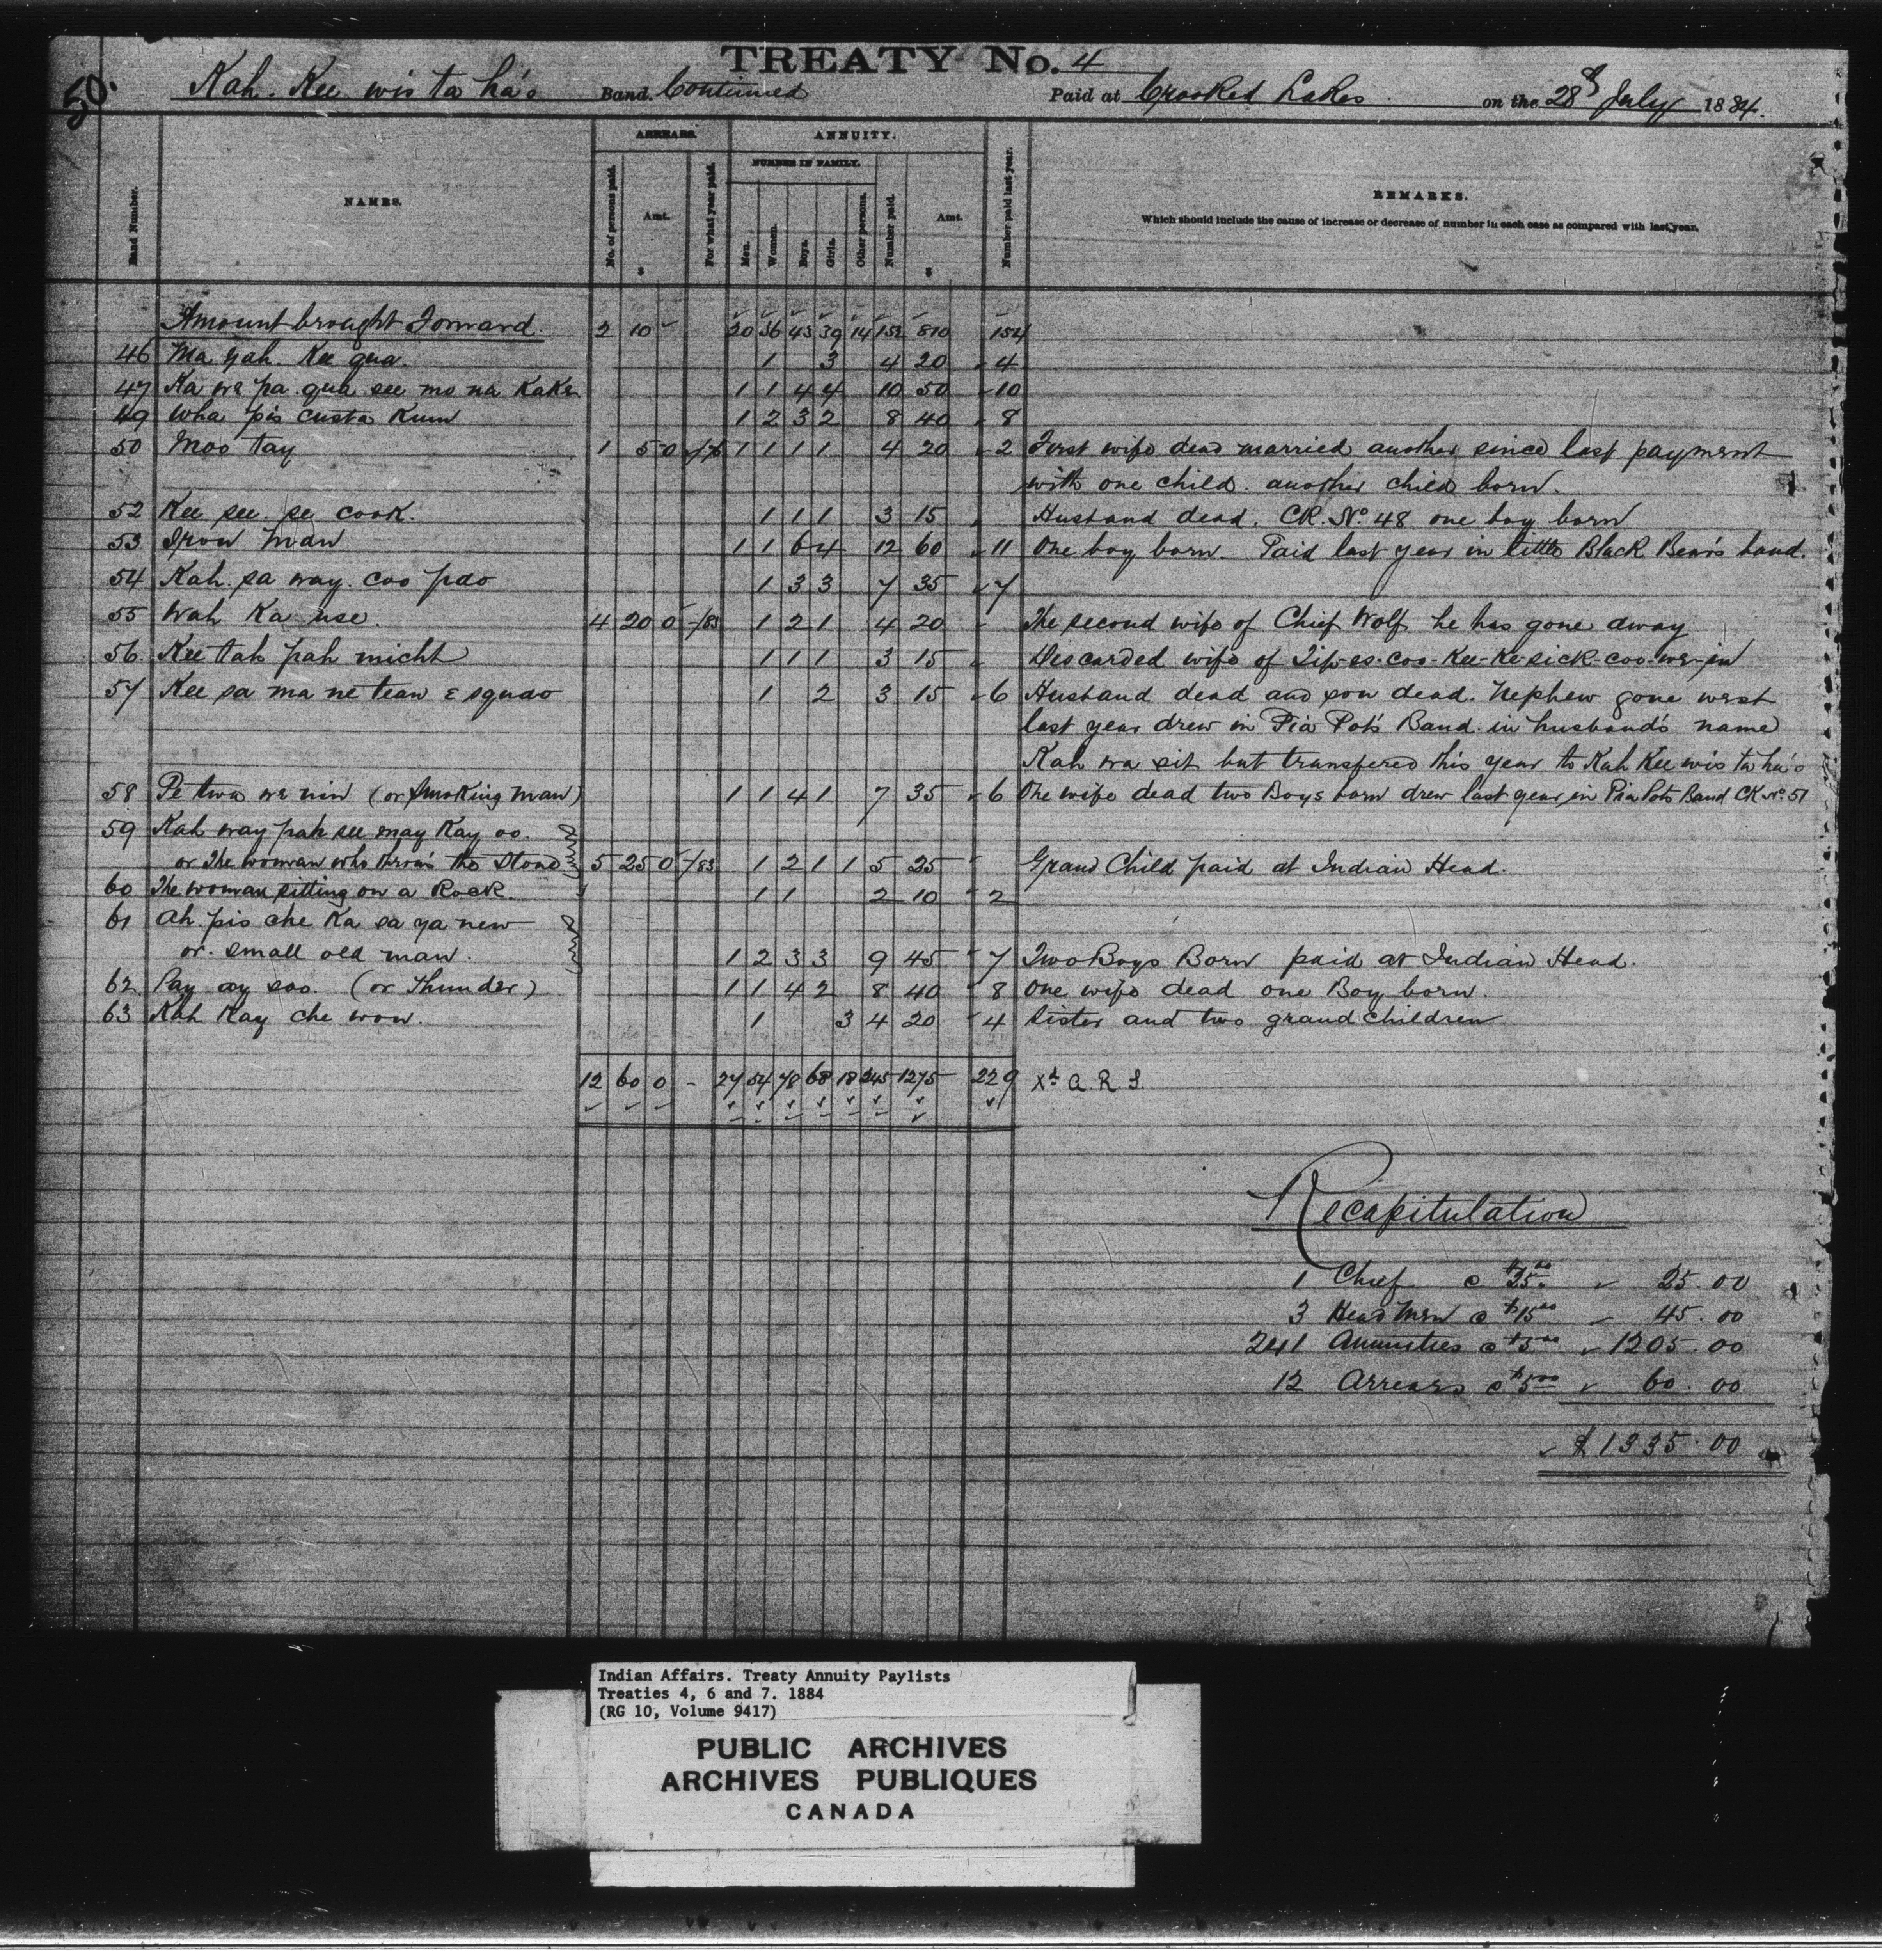 TREATY No. 4
50.
Kah. Kee wis ta ha's Band. Continued Paid at Crooked Lakes on the 28th July 1884.
ARREARS. ANNUITY.
NUMBER IN FAMILY.
Band Number. NAMES. No. of persons paid. Amt. For what year paid. Men. Women. Boys. Girls. Other persons. Number paid. Amt. Number paid last year. REMARKS.
Which should include the cause of increase or decrease of number in each case as compared with last year.
$ $
Amount brought Forward. 2 10 - 20 36 43 39 14 152 810 154
46 Ma yah. Kee qua. 1 3 4 20 4
47 Ka we pa. qua see mo na Kake 1 1 4 4 10 50 10
49 Wha pis custa Kum 1 2 3 2 8 40 8
50 Moo tay 1 5 0 1 1 1 1 4 20 2 First wife dead married another since last payment
with one child. another child born.
52 Kee see. se cook. 1 1 1 3 15 Husband dead. CK. No. 48 one boy born
53 Iron Man 1 1 6 4 12 60 11 One boy born. Paid last year in little Black Bear's band.
54 Kah. sa way. coo pao 1 3 3 7 35 7
55 Wah Ka use. 4 20 0 -/83 1 2 1 4 20 The second wife of Chief Wolf he has gone away
56. Kee tah pah micht 1 1 1 3 15 Descarded wife of Tip-es-coo-Kee-Ke-sick-coo-we-in
57 Kee sa ma ne tean E squao 1 2 3 15 6 Husband dead and son dead. Nephew gone west
last year drew in Pia Pot's Band in husband's name
Kah wa sit but transfered this year to Kah Kee wis ta ha's
58 Pe twa we nin (or Smoking man) 1 1 4 1 7 35 6 One wife dead two Boys born drew last year in Pia Pots Band CK No. 51
59 Kah way pah see may Kay oo.
or The woman who throws the Stone 5 25 0 -/83 1 2 1 1 5 25 Grand Child paid at Indian Head.
60 The woman sitting on a Rock. 1 1 2 10 2
61 Ah. pis che Ka sa ya new
or. small old man. 1 2 3 3 9 45 7 Two Boys Born paid at Indian Head.
62. Pay ay soo. (or Thunder) 1 1 4 2 8 40 8 One wife dead one Boy born.
63 Kah Kay che won. 1 3 4 20 4 Sister and two grand children
12 60 0 - 27 54 78 68 18 245 1275 229 Xd. A. R. S.
Recapitulation
1 Chief @ $25.00 25.00
3 Head Men @ $15.00 45.00
241 Annuities @ $5.00 1205.00
12 Arrears @ $5.00 60.00
$1335.00
Indian Affairs. Treaty Annuity Paylists
Treaties 4, 6 and 7. 1884
(RG 10, Volume 9417)
PUBLIC ARCHIVES
ARCHIVES PUBLIQUES
CANADA